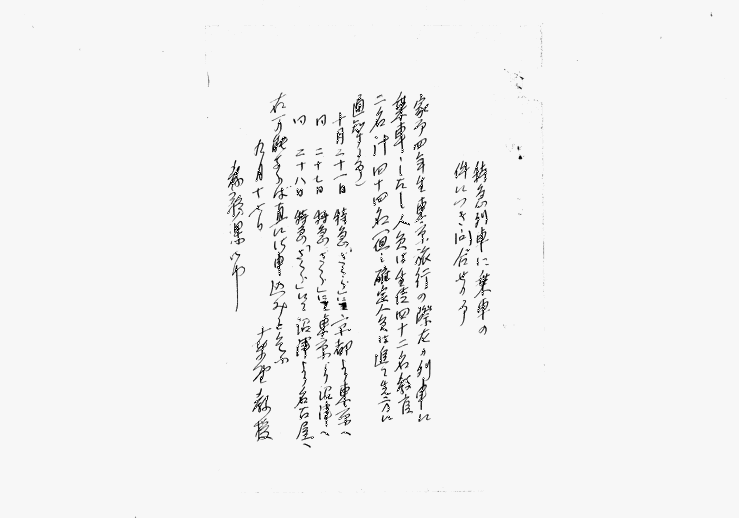 特急列車に乗車の
件につき問合せの事
家事四年生東京旅行の際左の列車に
乗車いたしたし人員は生徒四十二名教官
二名計四十四名 確定人員は追て先方に
通知する事)
十月二十一日 特急「さくら」にて京都より東京へ
〃 二十七日 特急「さくら」にて東京より沼津へ
〃 二十八日 特急「さくら」にて沼津より名古屋へ
右可能ならば直に 車込みを乞ふ
九月十七日
教授
教務課御中